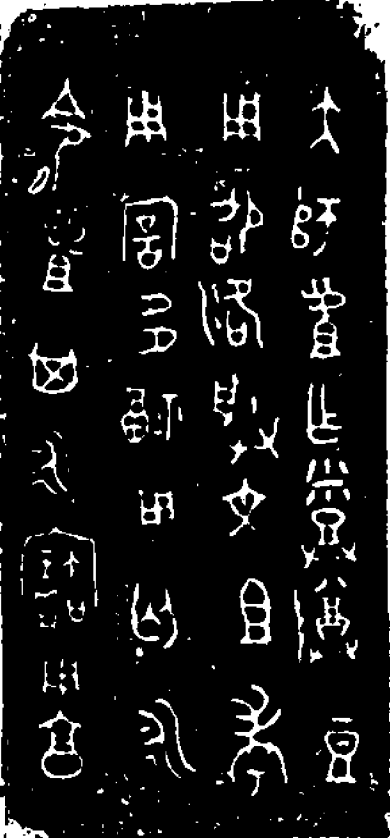 大師虘乍𤼷尊豆
用卲洛朕文且考
用祈多福用匄永
令虘其永寶用享